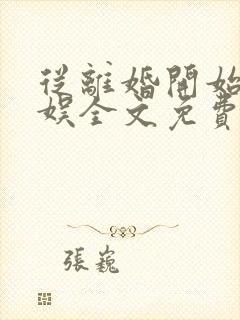 從離婚開始
娛全文免費
張巍